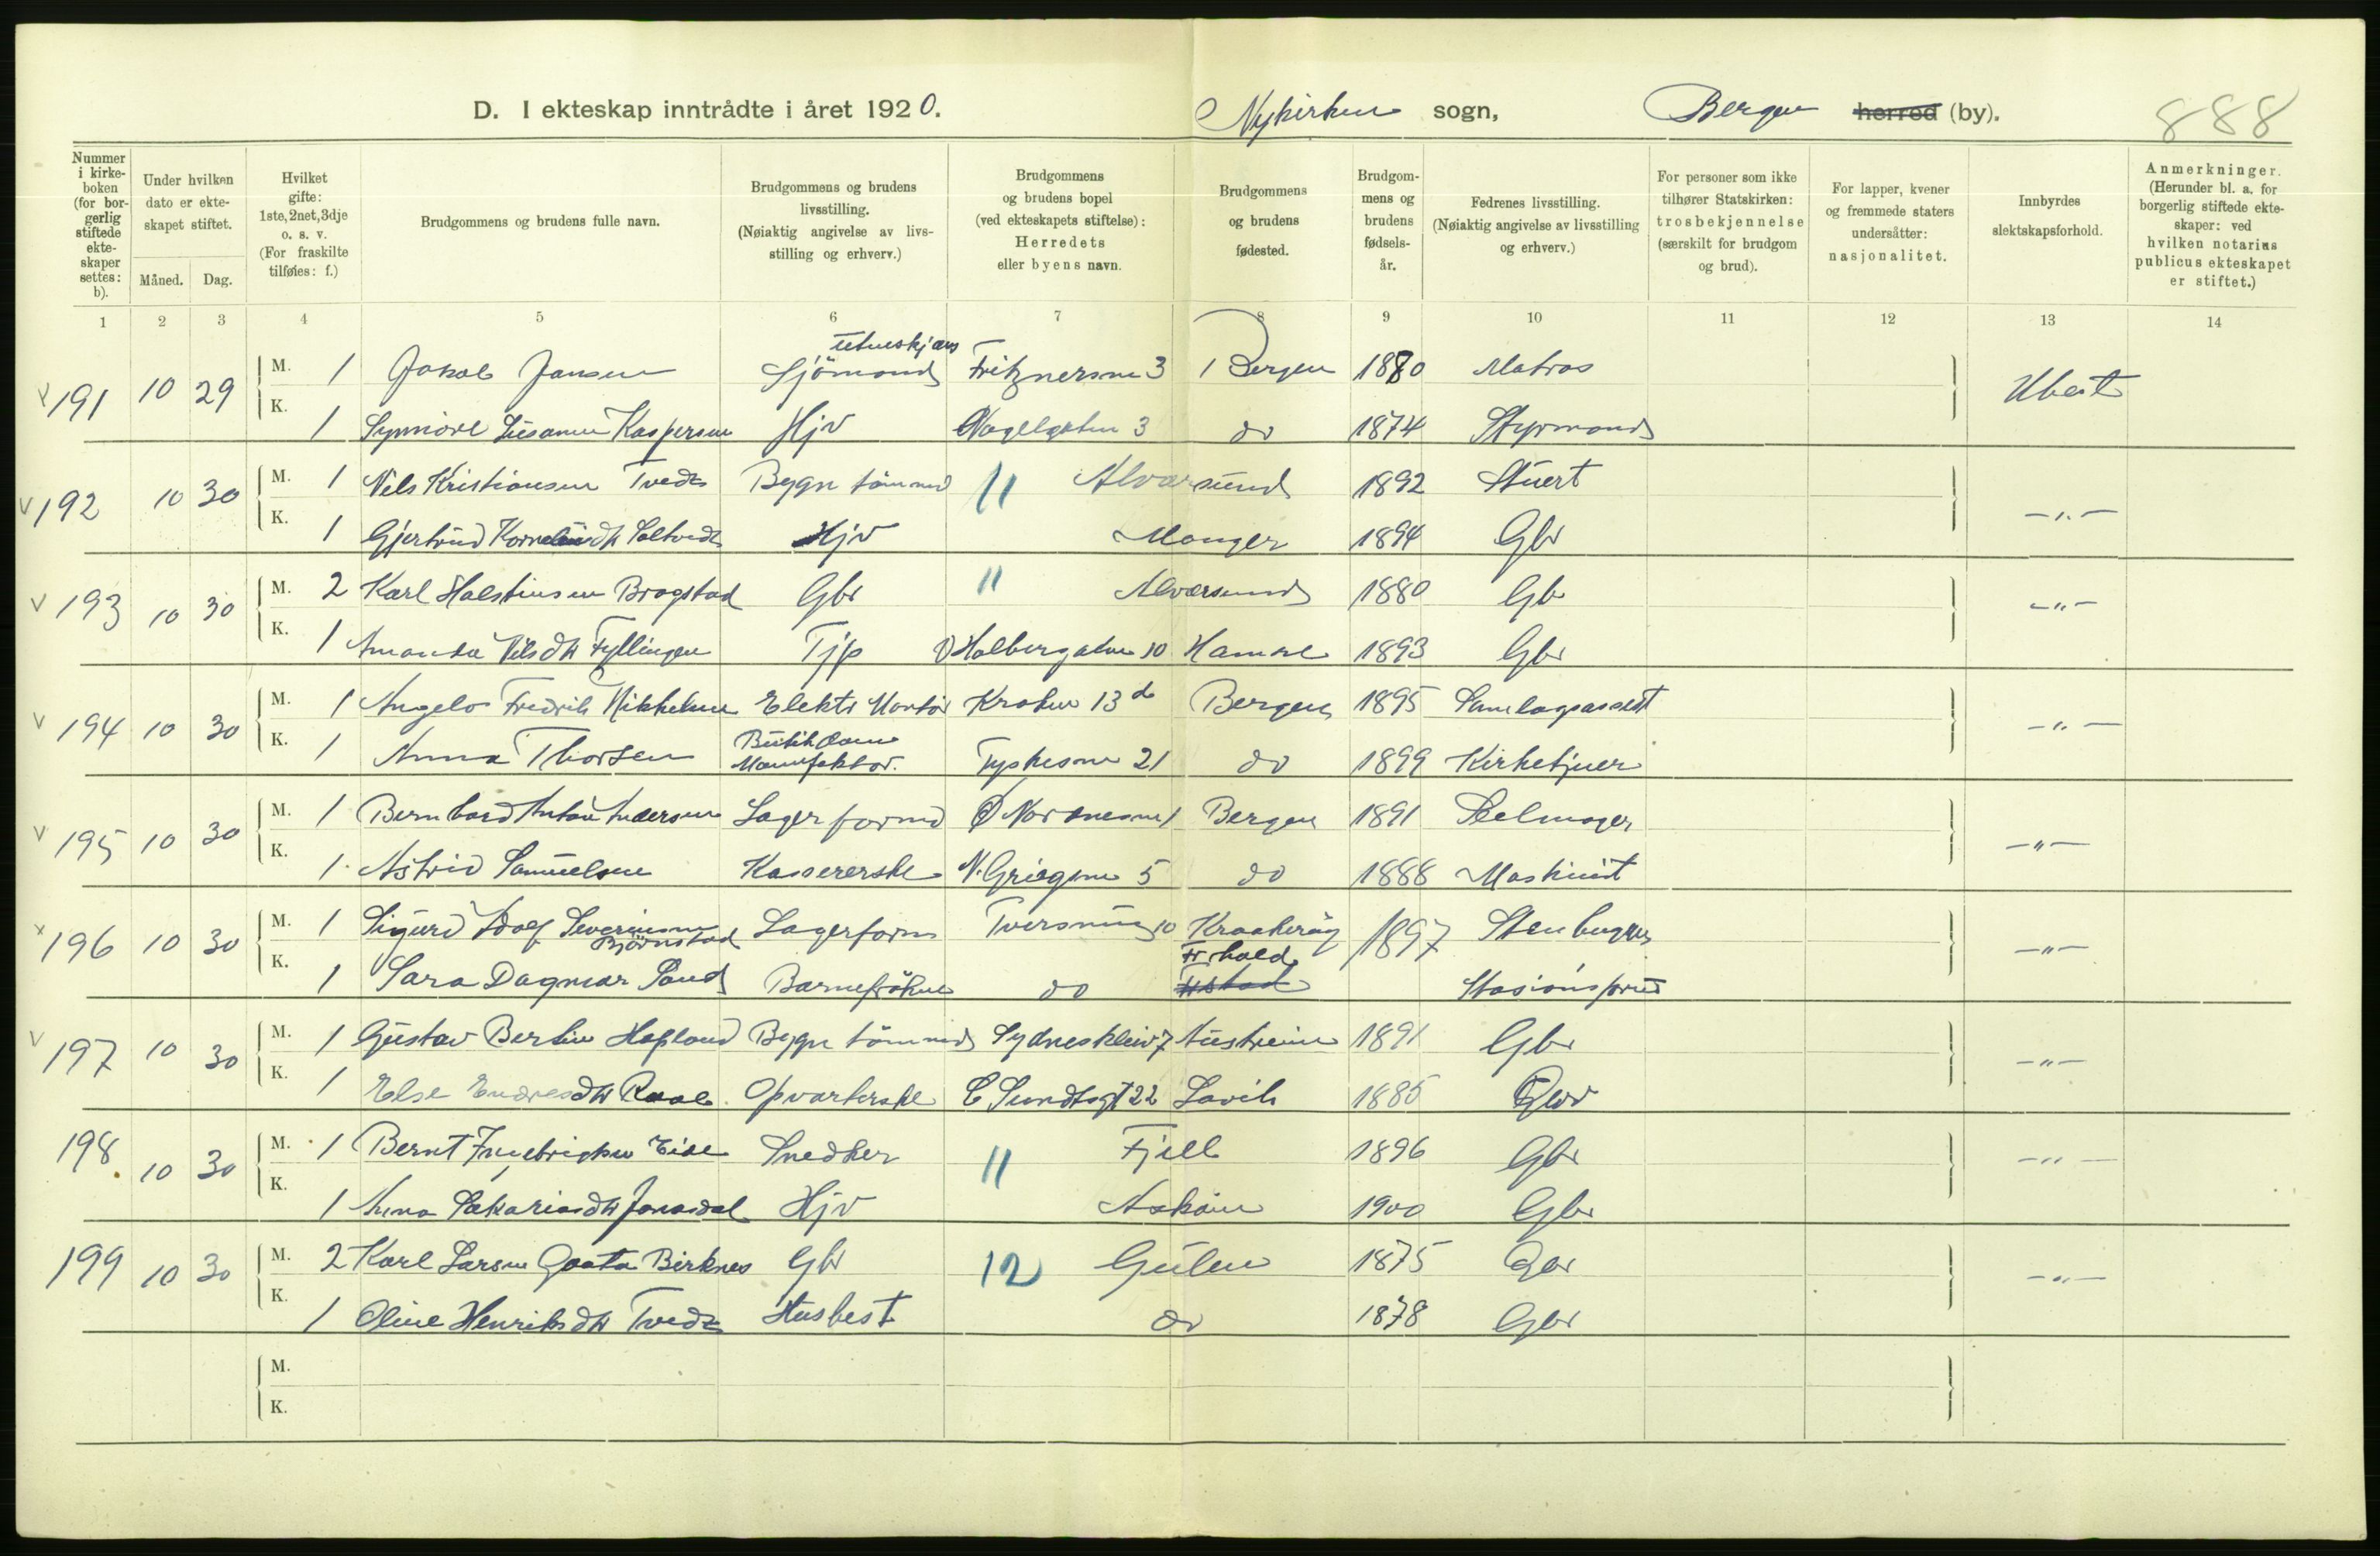 D. I ekteskap inntrådte i året 1920. Nykirken sogn, Bergen herred (by). 888
Nummer i kirke-boken (for bor-gerlig stiftede ekte-skaper settes: b).
Under hvilken dato er ekte-skapet stiftet.
Måned. Dag.
Hvilket gifte: 1ste, 2net, 3dje o. s. v. (For fraskilte tilføies: f.)
Brudgommens og brudens fulle navn.
Brudgommens og brudens livsstilling. (Nøiaktig angivelse av livs-stilling og erhverv.)
Brudgommens og brudens bopel (ved ekteskapets stiftelse): Herredets eller byens navn.
Brudgommens og brudens fødested.
Brudgom-mens og brudens fødsels-år.
Fedrenes livsstilling. (Nøiaktig angivelse av livsstilling og erhverv.)
For personer som ikke tilhører Statskirken: trosbekjennelse (særskilt for brudgom og brud).
For lapper, kvener og fremmede staters undersåtter: nasjonalitet.
Innbyrdes slektskapsforhold.
Anmerkninger. (Herunder bl. a. for borgerlig stiftede ekte-skaper: ved hvilken notarius publicus ekteskapet er stiftet.)
1 2 3 4 5 6 7 8 9 10 11 12 13 14
191 10 29 M. 1 Jakob Jansen Sjömand utenskjærs Fritznersm 3 Bergen 1880 Matros Ubesl
K. 1 Synnöve Susanne Kaspersen Hjv Nagelgaten 3 do 1874 Styrmand
192 10 30 M. 1 Nils Kristiansen Tvedt Bygn tömmr 11 Alversund 1892 Stuert -"-
K. 1 Gjertrud Korneliusdtr Soltvedt Hjv Manger 1894 Gbr
193 10 30 M. 2 Karl Halstensen Brogstad Gbr 11 Alversund 1880 Gbr -"-
K. 1 Amanda Nilsdtr Fyllingen Tjp Holbergatn 10 Hamre 1893 Gbr
194 10 30 M. 1 Angelo Fredrik Mikkelsen Elektr Montör Krohn 13 d Bergen 1895 Samlagsassist -"-
K. 1 Anna Thorsen Butikdame Manufaktur. Tyskesm 21 do 1899 Kirketjener
195 10 30 M. 1 Bernhard Anton Andersen Lagerformd Ø Nordnesm 1 Bergen 1891 Seilmager -"-
K. 1 Astrid Samuelsen Kassererske N. Griegsm 5 do 1888 Maskinist
196 10 30 M. 1 Sigurd Adolf Severinsen Björnstad Lagerform 10 Kraakeröy 1897 -"-
K. 1 Sara Dagmar Sand Barnefröken do Fr.hald
197 10 30 M. 1 Gustav Bertin Hopland Bygn tömmr Sydneskleiv 7 Austrheim 1891 Gbr -"-
K. 1 Else Endresdtr Opvarterske E Sundtsgt 22 Lavik 1885 Gbr
198 10 30 M. 1 Bernt Eide Snedker 11 Fjell 1896 Gbr -"-
K. 1 Anna Sakariasdtr Jonasdal Hjv Asköin 1900 Gbr
199 10 30 M. 2 Karl Larsen Birknes Gbr 12 Gulen 1875 Gbr -"-
K. 1 Oline Henriksdtr Tvedt Husbest do 1878 Gbr
M.
K.